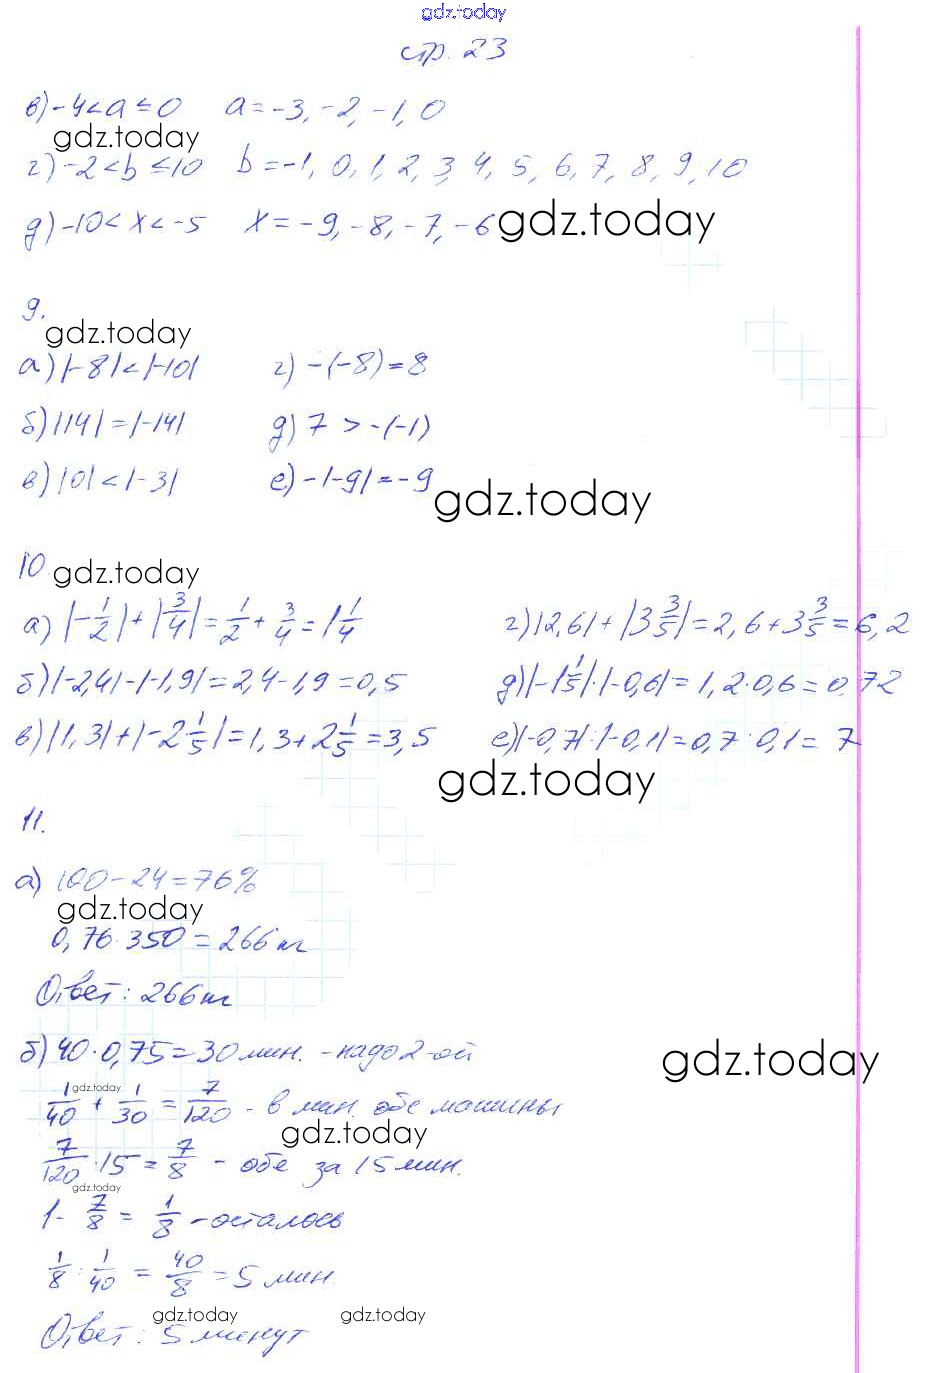 gdz.today
стр. 23
в) -4 < a ≤ 0   a = -3, -2, -1, 0
gdz.today
г) -2 < b ≤ 10   b = -1, 0, 1, 2, 3, 4, 5, 6, 7, 8, 9, 10
д) -10 < x < -5   x = -9, -8, -7, -6
gdz.today
9.
gdz.today
а) |-8| < |-10|   г) -(-8) = 8
б) |14| = |-14|   д) 7 > -(-1)
в) |0| < |-3|   е) -|-9| = -9
gdz.today
10
gdz.today
а) |-1/2| + |3/4| = 1/2 + 3/4 = 1 1/4   г) |2,6| + |3 3/5| = 2,6 + 3 3/5 = 6,2
б) |-2,4| - |-1,9| = 2,4 - 1,9 = 0,5   д) |-1 1/5| · |-0,6| = 1,2 · 0,6 = 0,72
в) |1,3| + |-2 1/5| = 1,3 + 2 1/5 = 3,5   е) |-0,7| : |-0,1| = 0,7 : 0,1 = 7
gdz.today
11.
а) 100 - 24 = 76%
gdz.today
0,76 · 350 = 266 кг
Ответ: 266 кг
б) 40 · 0,75 = 30 мин. - надо 2-ой
gdz.today
gdz.today
1/40 + 1/30 = 7/120 - в мин. обе машины
gdz.today
7/120 · 15 = 7/8 - обе за 15 мин.
gdz.today
1 - 7/8 = 1/8 - осталось
1/8 : 1/40 = 40/8 = 5 мин.
gdz.today   gdz.today
Ответ: 5 минут